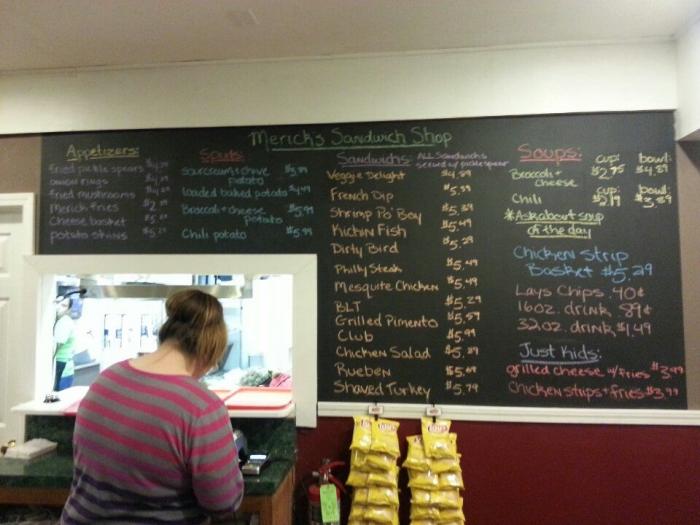 Merick's Sandwich Shop
Appetizers:
fried pickle spears $4.99
onion rings
fried mushrooms
Merick fries
Cheese basket
potato skins
Spuds:
sourcream + chive $3.99
potato
loaded baked potato $4.49
Broccoli + cheese $5.99
potato
Chili potato $5.99
Sandwichs: ALL Sandwichs
served w/ pickle spear
Veggie Delight $4.89
French Dip $5.99
Shrimp Po' Boy $5.89
Kickin Fish $5.49
Dirty Bird $5.29
Philly Steak $5.49
Mesquite Chicken $5.49
BLT $5.29
Grilled Pimento $5.59
Club $5.99
Chicken Salad $5.29
Rueben $5.69
Shaved Turkey $5.79
Soups: cup: bowl:
Broccoli + $2.75 $4.29
cheese
cup: bowl:
Chili $2.19 $3.89
*Ask about soup
of the day
Chicken Strip
Basket $5.29
Lays Chips .90¢
16oz. drink, 89¢
32oz. drink, $1.49
Just Kids:
grilled cheese w/ fries $3.99
Chicken strips + fries $3.99
Lay's
Lay's